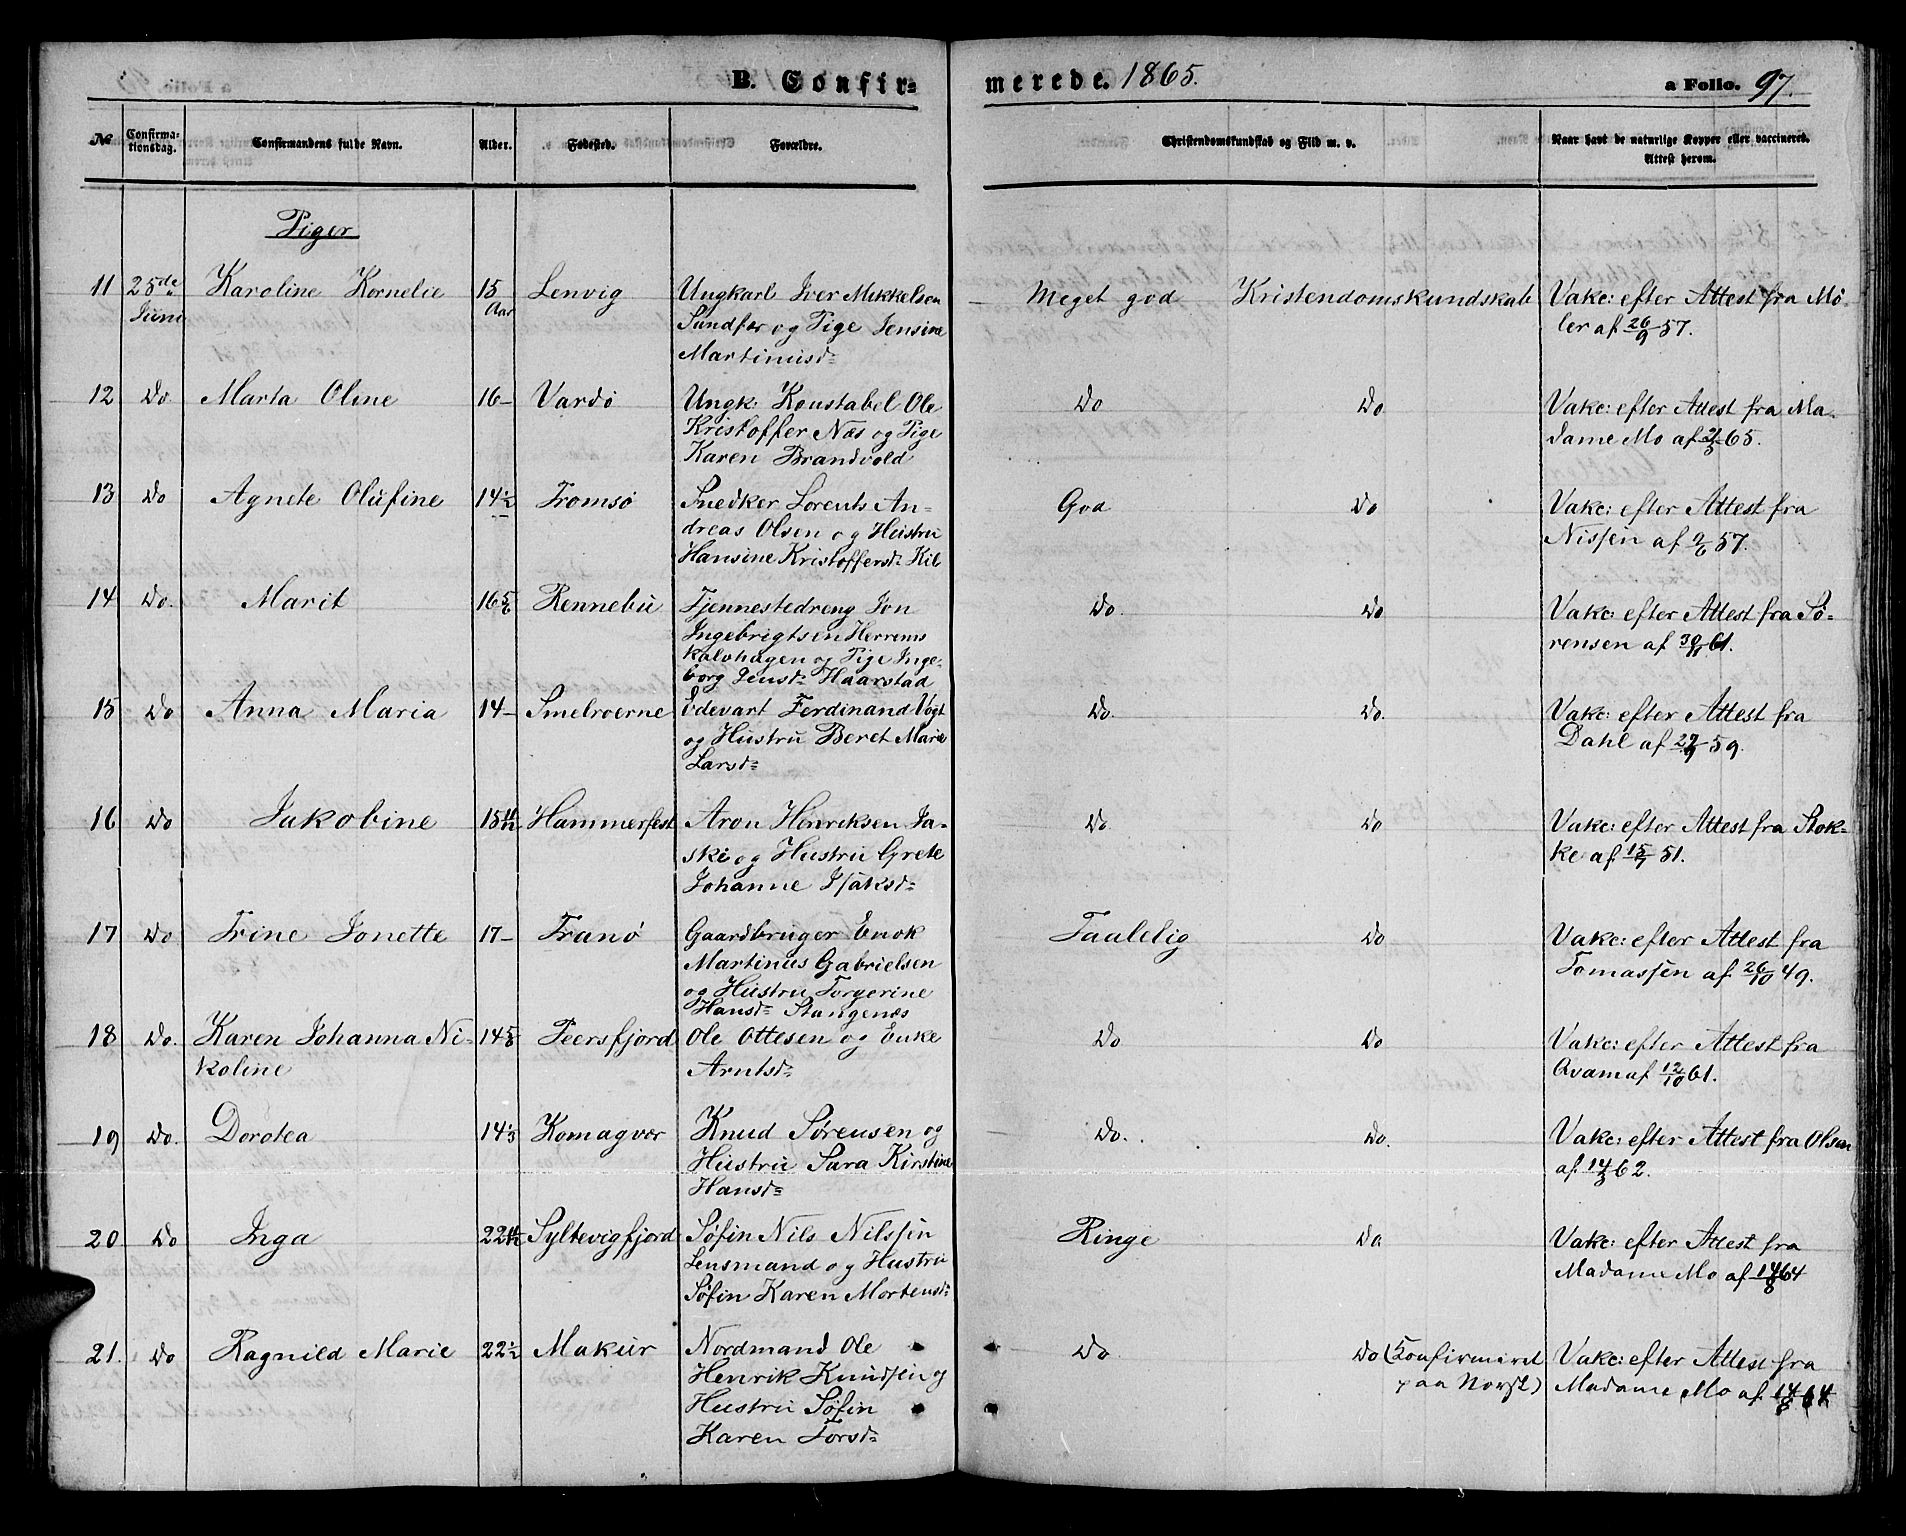 B. Confir-
merede. 1865.
a Folio. 97.
No
Confirma-
tionsdag.
Confirmandens fulde Navn.
Alder.
Fødested.
Forældre.
Christendomskundskab og Flid m. v.
Naar havt de naturlige Kopper eller vaccineret.
Attest herom.
Piger
11 25de Juni Karoline Kornelie 15 Aar Lenvig
Ungkarl Iver Mikkelsen
Sandfær og Pige Jensine
Martinusd=
Meget god Kristendomskundskab
Vakc: efter Attest fra Mø-
ler af 26/9 57.
12 Do Marta Oline 16- Vardö
Ungk: Konstabel Ole
Kristoffer Næs og Pige
Karen Brandvold
Do Do
Vakc: efter Attest fra Ma-
dame Mo af 65.
13 Do Agnete Olufine 14 1/2 Tromsö
Snedker Lorents An-
dreas Olsen og Hustru
Hansine Kristoffersd= Kil
God Do
Vakc: efter Attest fra
Nissen af 9/6 57.
14 Do. Marit 16 5/6 Rennebu
Tjennestedreng Jon
Ingebrigtsen Herrems
kalvhagen og Pige Inge-
borg Jensd= Haarstad
Do. Do
Vakc: efter Attest fra Sø-
rensen af 61.
15 Do Anna Maria 14- Smelroerne
Edevart Ferdinand Vogt
og Hustru Beret Marie
Larsd=
Do. Do.
Vakc: efter Attest fra
Dahl af 59.
16 Do Jakobine 15 11/12 Hammerfest
Aron Henriksen Ja-
ski og Hustru Grete
Johanne Isaksd=
Do Do
Vakc: efter Attest fra Stok-
ke af 15/7 51.
17 Do Trine Jonette 17- Tranö
Gaardbruger Enok
Martinus Gabrielsen
og Hustru Torgerine
Hansd= Stangenæs
Taalelig Do
Vakc: efter Attest fra
Tomassen af 26/10 49.
18 Do. Karen Johanna Ni-
koline 14 Peersfjord
Ole Ottesen og Enke
Arntsd=
Do Do
Vakc: efter Attest fra
Qvam af 12/10 61.
19 Do. Dorotea 14 1/3 Komagvær
Knud Sørensen og
Hustru Sara Kirstine
Hansd=
Do. Do.
Vakc: efter Attest fra Olsen
af 62.
20 Do Inga 22 11/12 Syltevigfjord
Søfin Nils Nilssen
Lensmand og Hustru
Søfin Karen Mortensd=
Ringe Do
Vakc: efter Attest fra
Madame Mo af 14/8 64
21. Do Ragnild Marie 22 1/2 Makur
Nordmand Ole
Henrik Knudsen og
Hustru Søfin
Karen Torsd=
Do Do (Konfirmeret
paa Norsk)
Vakc: efter Attest fra
Madame Mo af 14/8 64